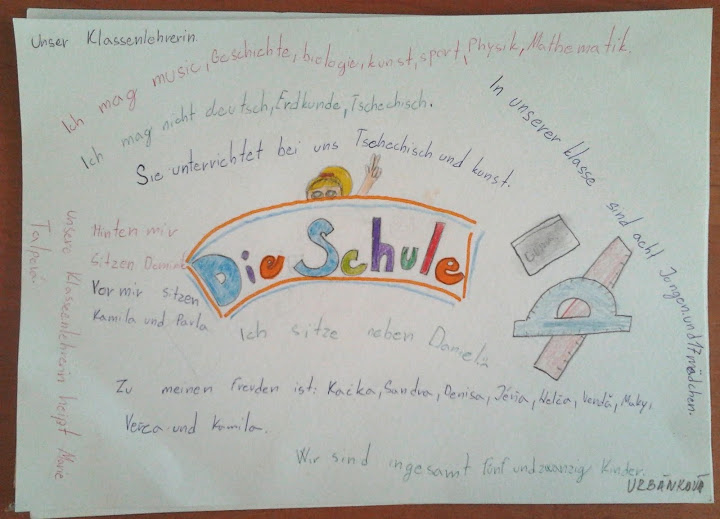 Unser Klassenlehrerin.
Ich mag music, Geschichte, biologie, kunst, sport, Physik, Mathematik.
Ich mag nicht deutsch, Erdkunde, Tschechisch.
Sie unterrichtet bei uns Tschechisch und kunst.
In unserer klasse sind acht Jongen und 17 mädchen.
Die Schule
unsere Klassenlehrerin heipt Marie
Talpová.
Hinten mir
Sitzen
Vor mir sitzen
Kamila und Pavla
Ich sitze neben
Zu meinen Freuden ist: Kačka, Sandra, Denisa, Verča, Maky,
Verča und Kamila.
Wir sind ingesamt fünf und zwanzig Kinder.
URBÁNKOVÁ